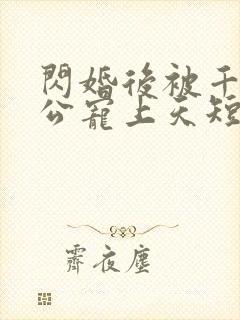 閃婚後被千
公寵上天短
霽夜塵